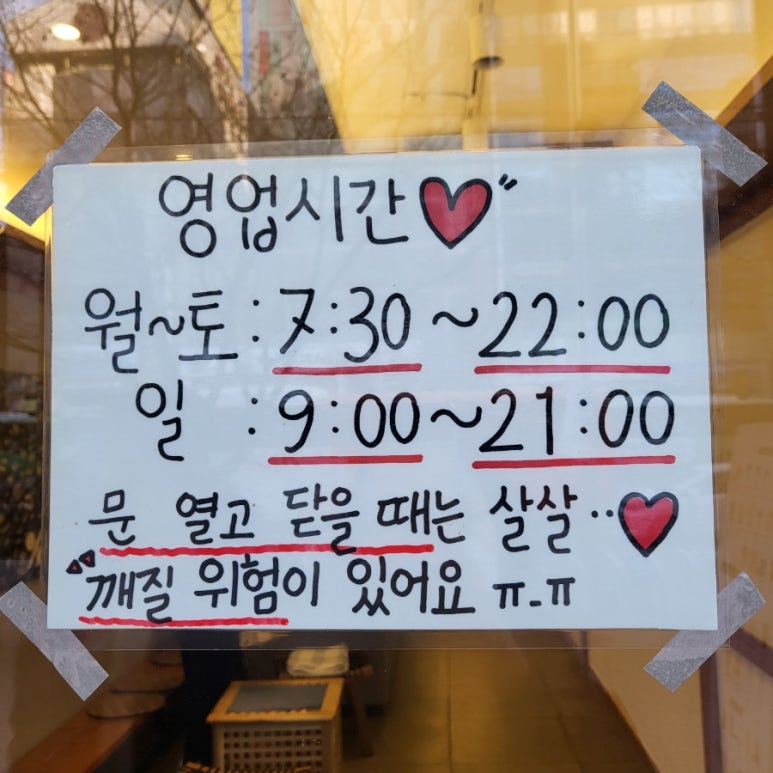 영업시간
월~토 : 7:30 ~ 22:00
일 : 9:00 ~ 21:00
문 열고 닫을 때는 살살..
깨질 위험이 있어요 ㅠ_ㅠ